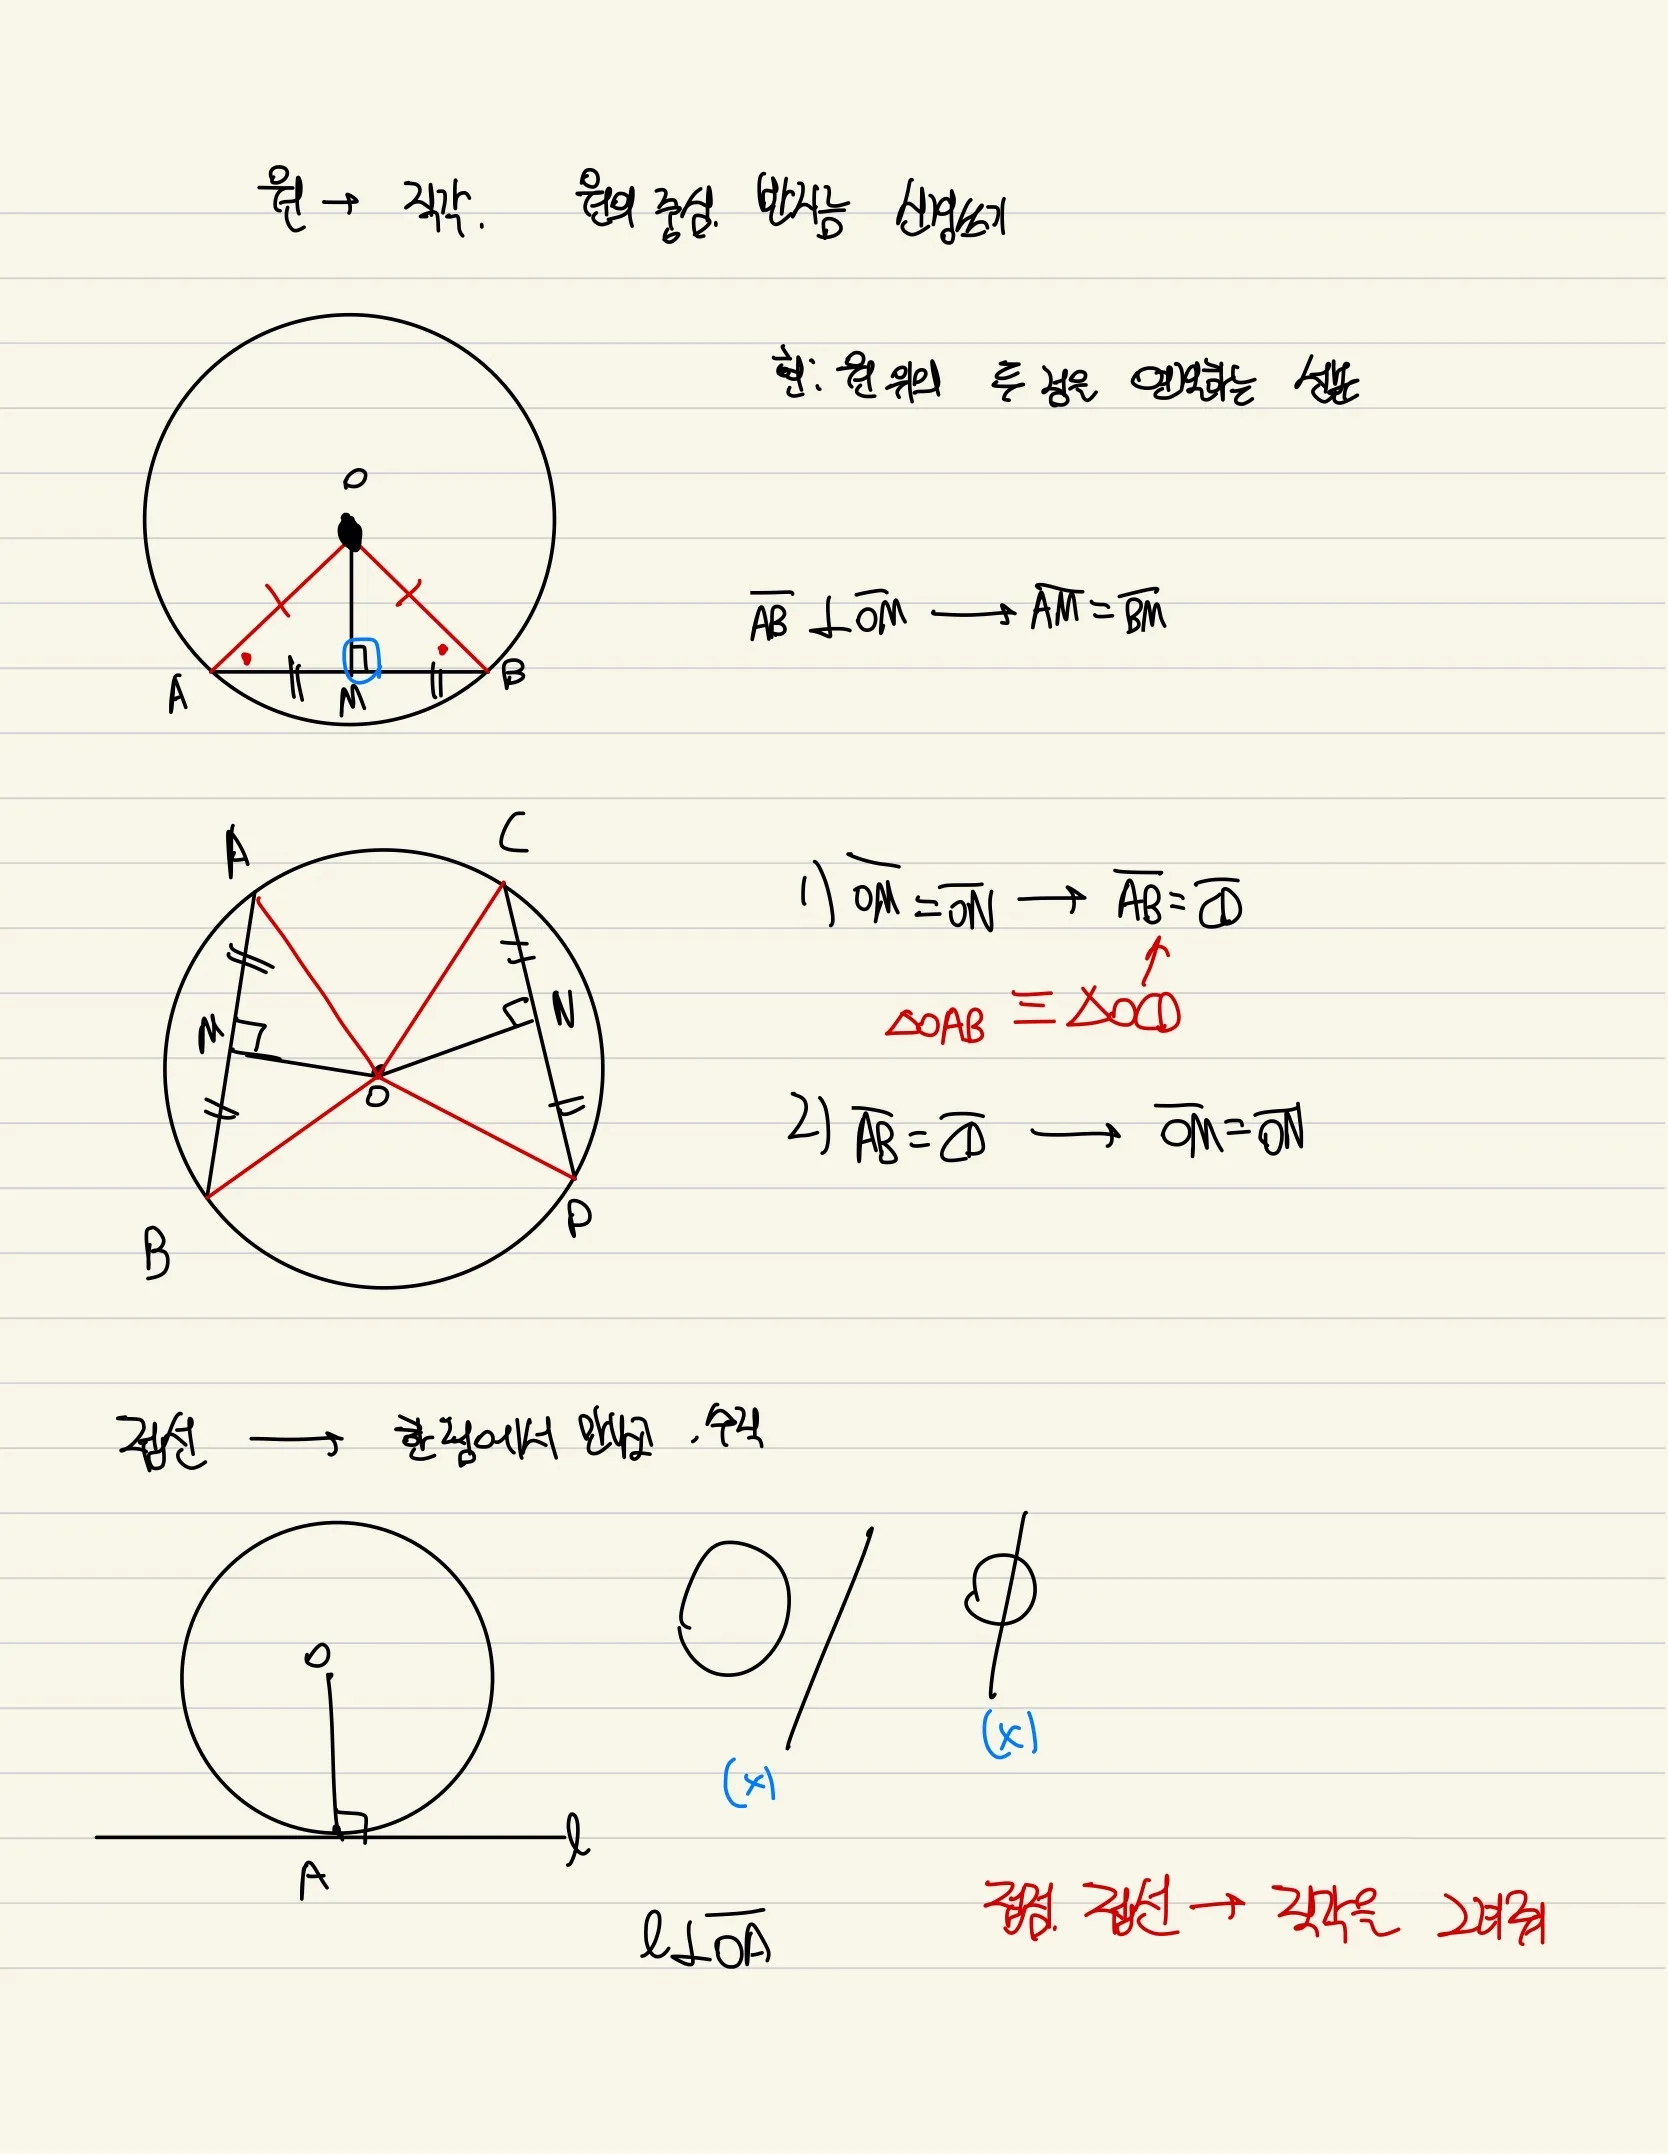 원 → 직각. 원의 중심. 반지름 신경쓰기
현: 원 위의 두 점을 연결하는 선분
O
A M B
AB ⊥ OM → AM = BM
A C
M N
O
B D
1) OM = ON → AB = CD
△OAB ≡ △OCD
2) AB = CD → OM = ON
접선 → 한 점에서 만나고 . 수직
O
A l
(x) (x)
l ⊥ OA
접점. 접선 → 직각을 그려줘